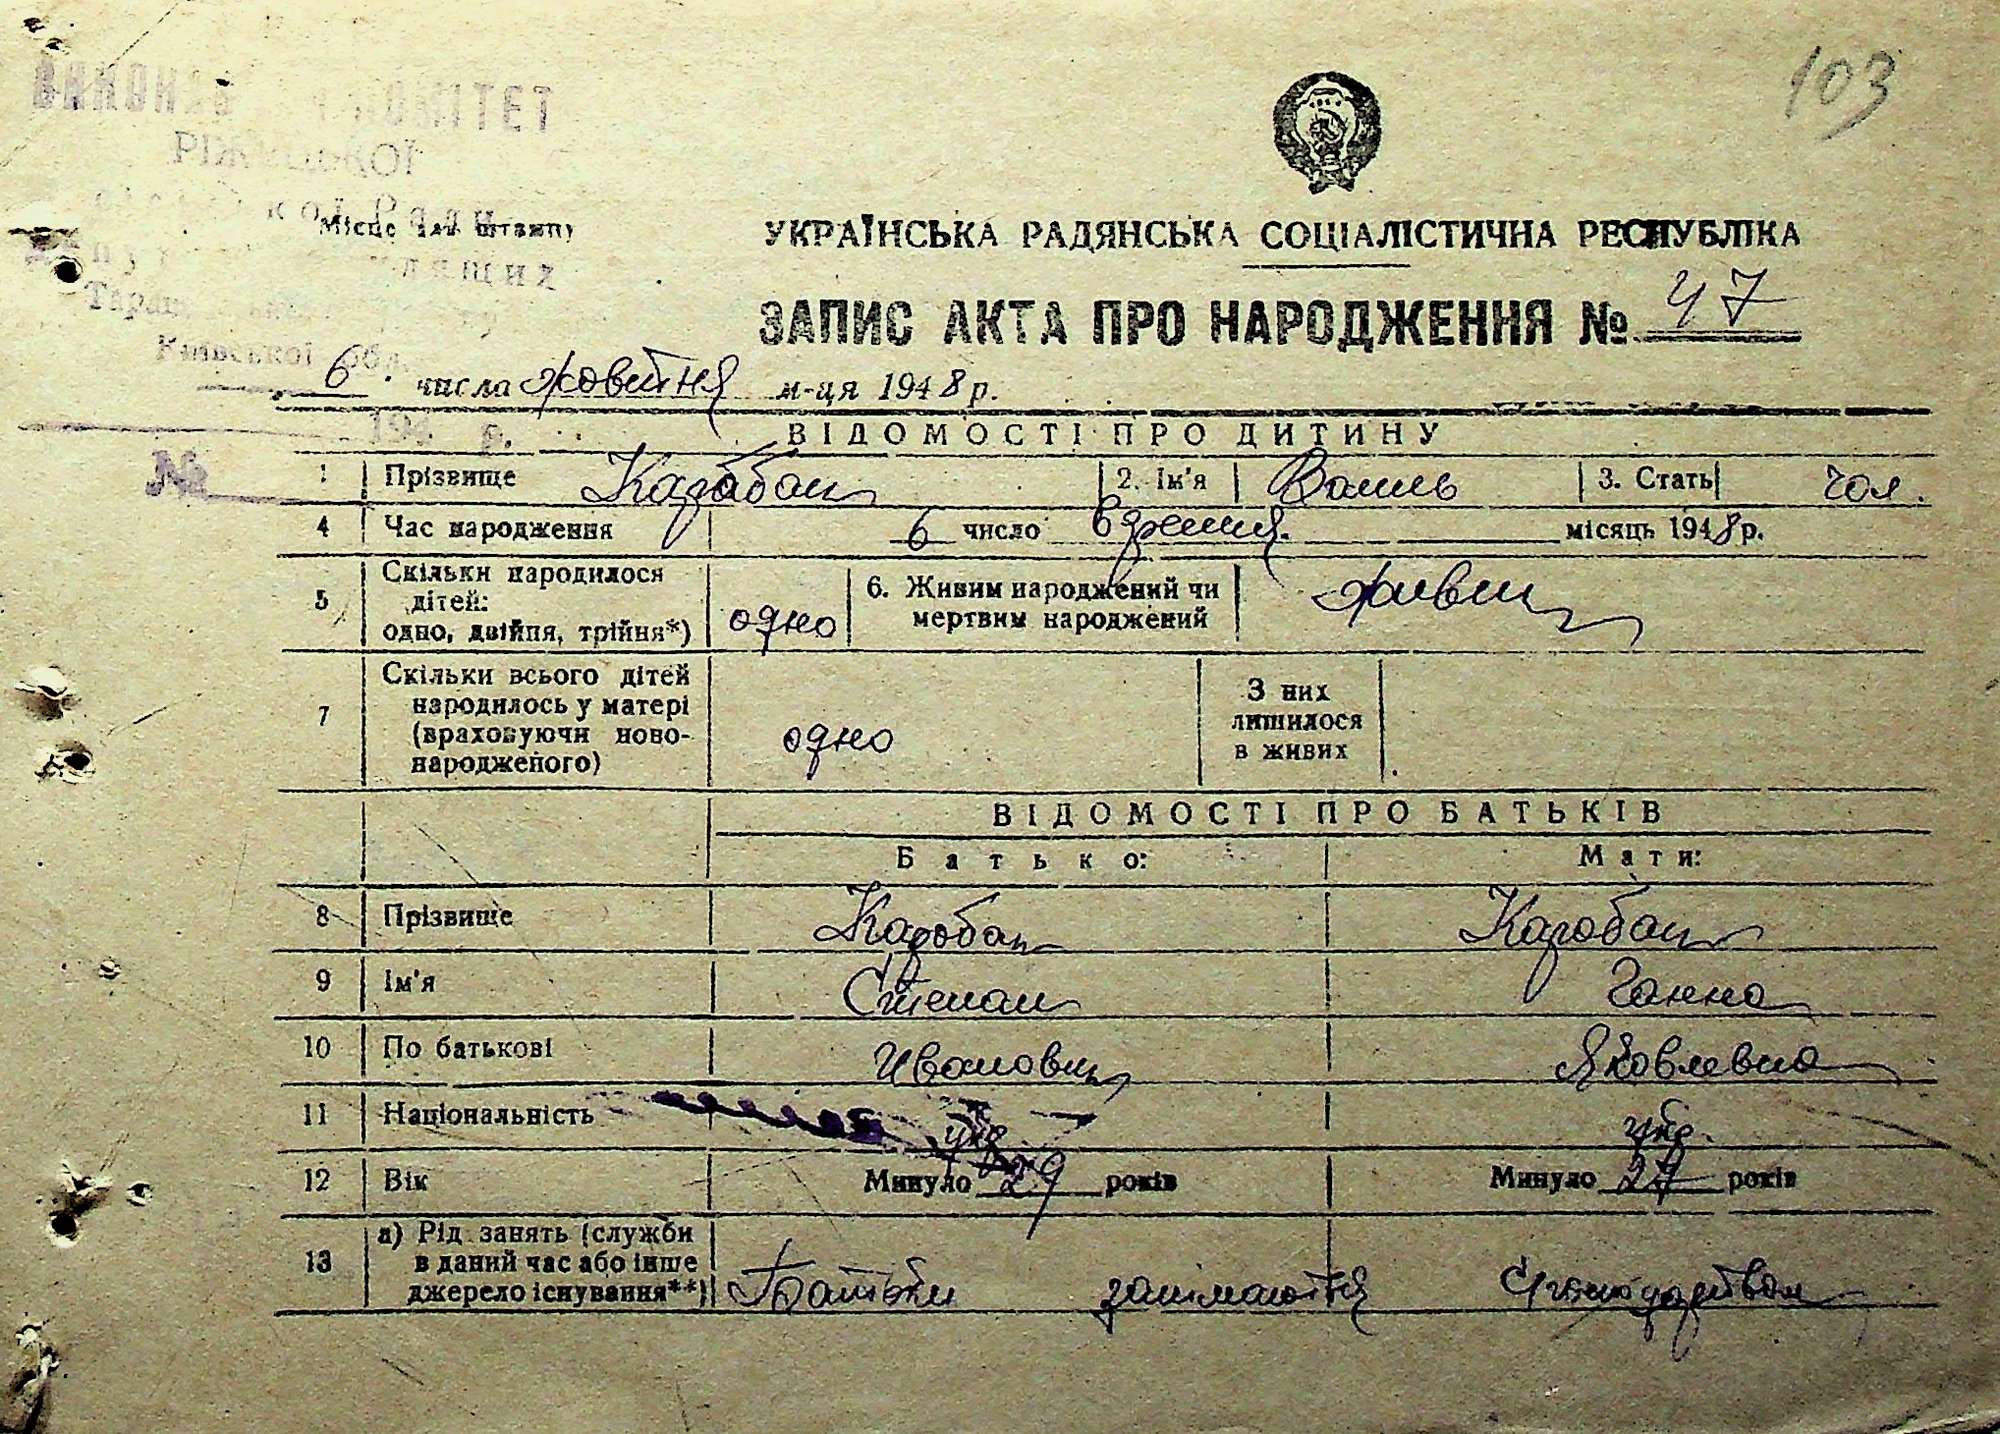 103
КОМІТЕТ
Місце для штампу
Київської обл.
УКРАЇНСЬКА РАДЯНСЬКА СОЦІАЛІСТИЧНА РЕСПУБЛІКА
ЗАПИС АКТА ПРО НАРОДЖЕННЯ № 47
6 числа жовтня м-ця 1948 р.
194 р.
№
ВІДОМОСТІ ПРО ДИТИНУ
1 Прізвище Карабан 2. Ім'я Василь 3. Стать чол.
4 Час народження 6 число вересня місяць 1948 р.
5 Скільки народилося дітей: одно, двійня, трійня*) одно 6. Живим народжений чи мертвим народжений живим
7 Скільки всього дітей народилось у матері (враховуючи ново-народженого) одно З них лишилося в живих
ВІДОМОСТІ ПРО БАТЬКІВ
Батько: Мати:
8 Прізвище Карабан Карабан
9 Ім'я Степан Ганна
10 По батькові Иванович Яковлевна
11 Національність укр укр.
12 Вік Минуло 29 років Минуло 27 років
13 а) Рід занять (служби в даний час або інше джерело існування**) Батьки занімаются